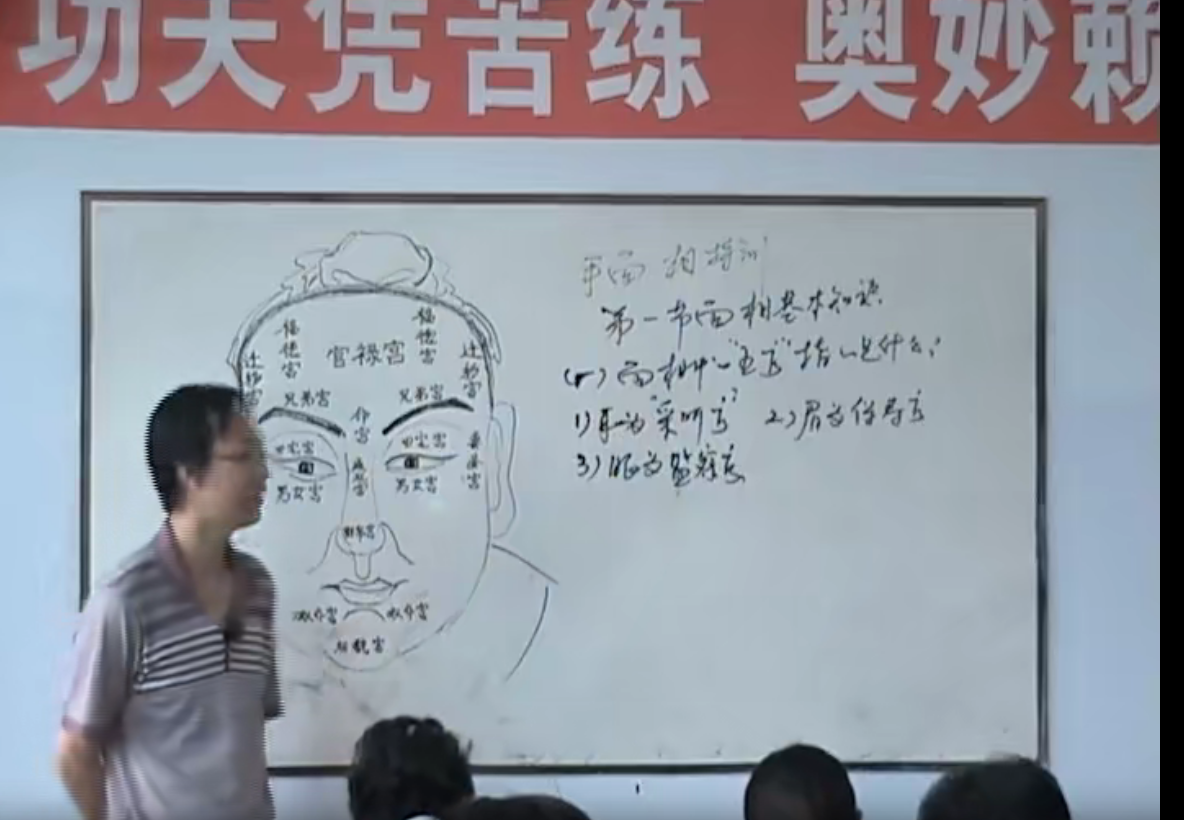 功夫凭苦练 奥妙赖
面相培训
第一节面相基本知识
(一)面相中"五官"指的是什么?
1)耳为"采听官" 2)眉为保寿官
3)眼为监察官
福德宫
福德宫
官禄宫
迁移宫
迁移宫
兄弟宫
兄弟宫
命宫
田宅宫
田宅宫
男女宫
男女宫
疾厄宫
财帛宫
奴仆宫
奴仆宫
相貌宫